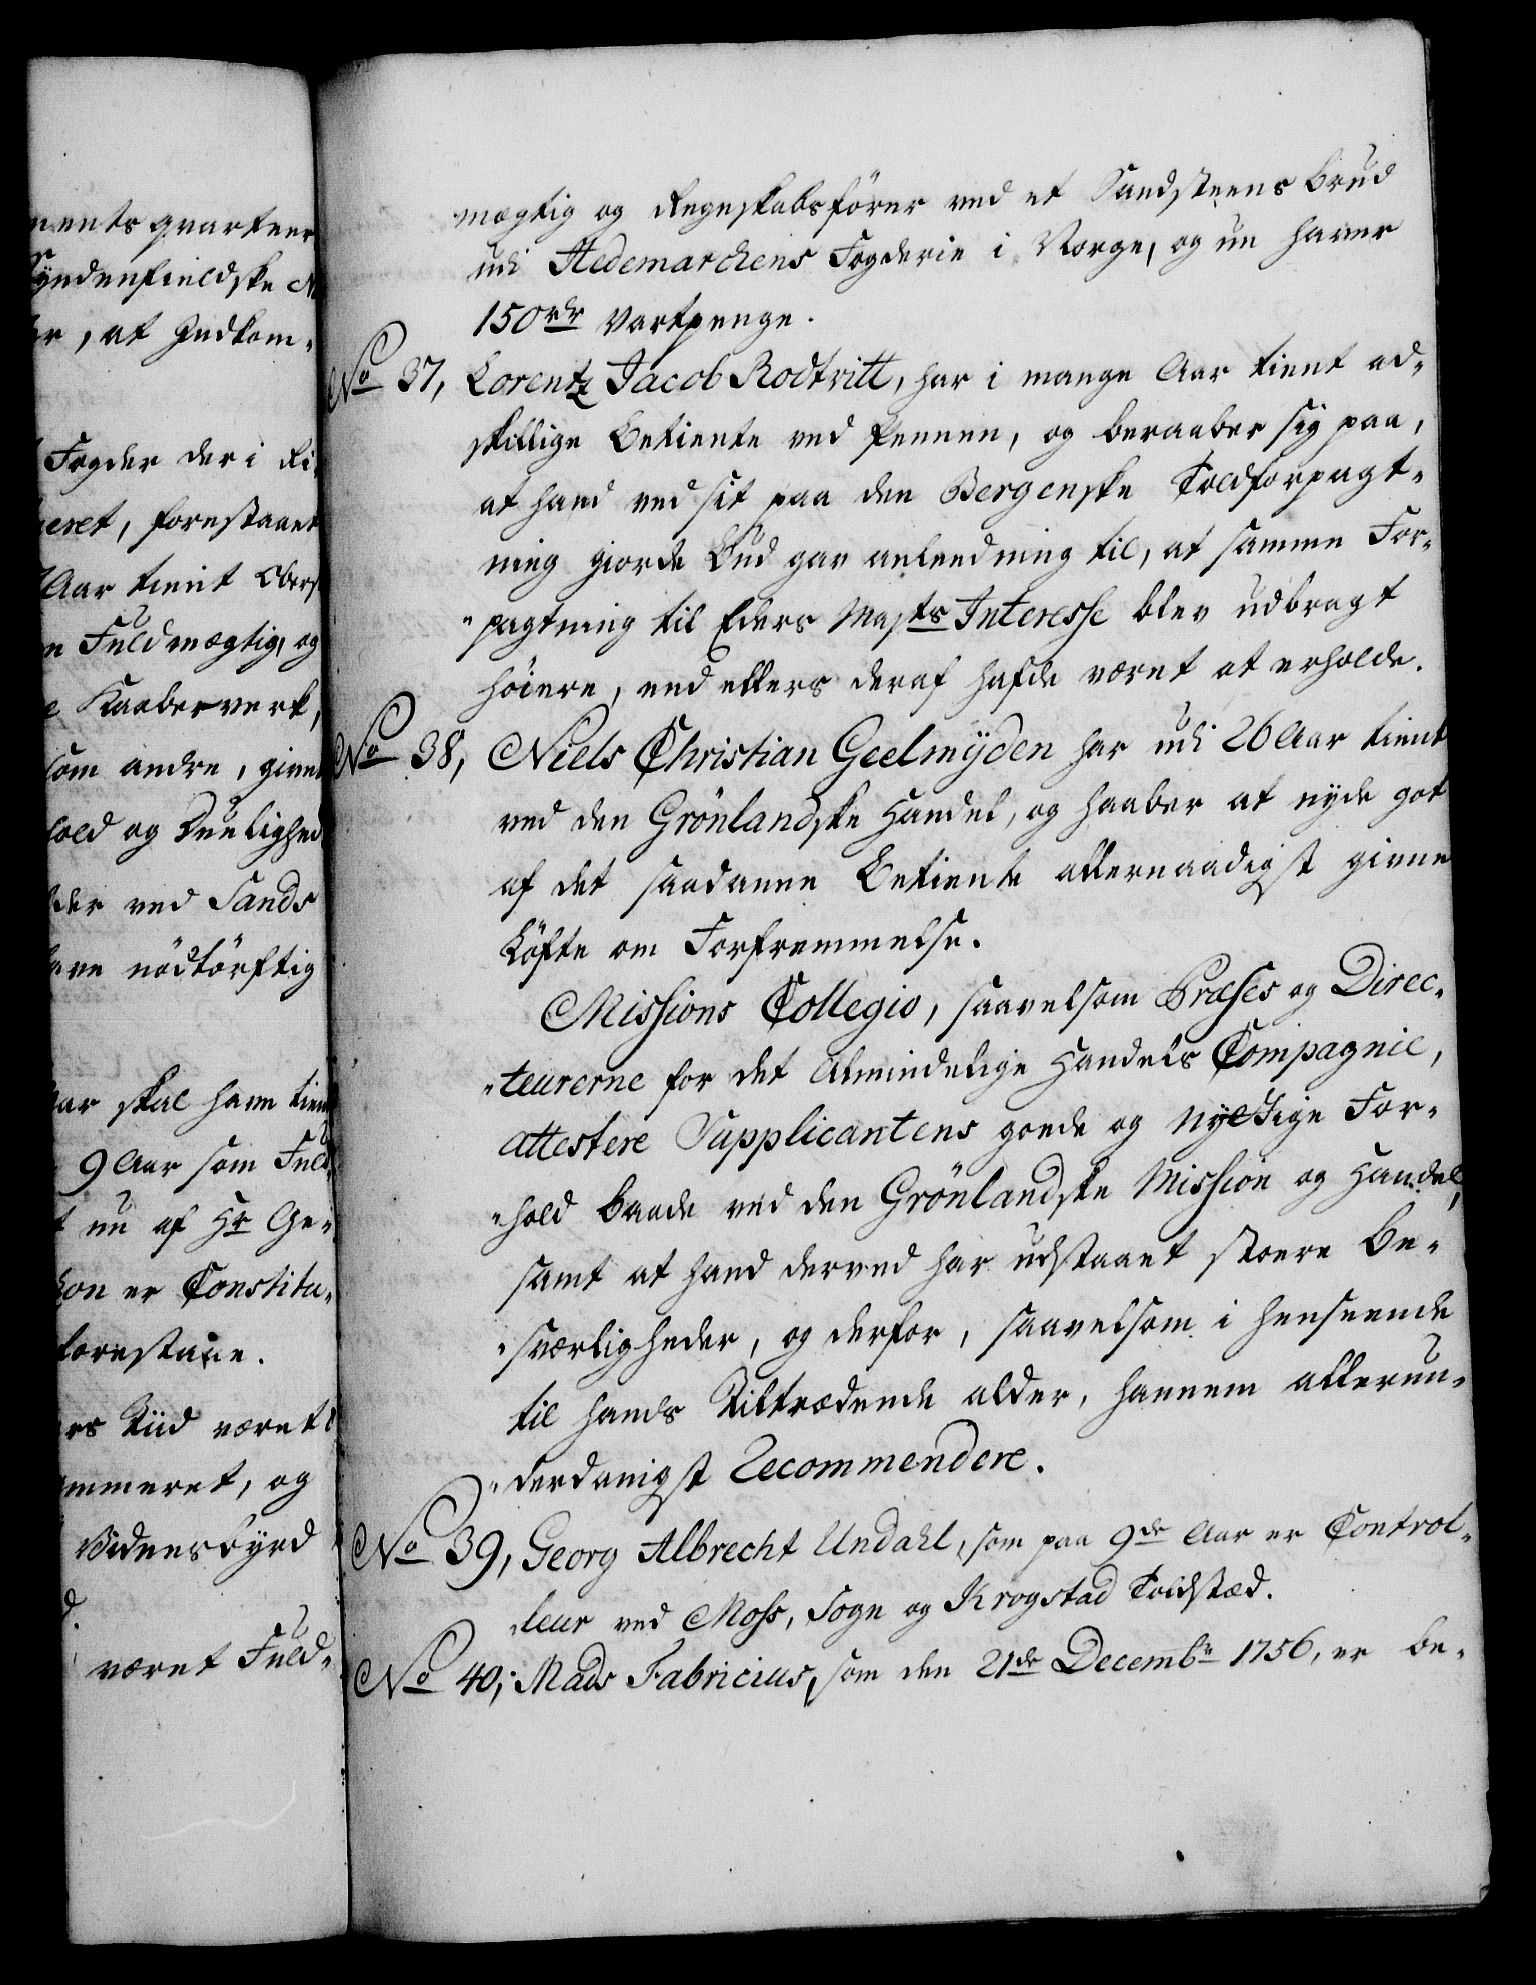 ments qvarteer
Syndenfieldske N
er, at Indkom-
Fogder der i Ri
eret, forestaaet
Aar tient Obers
n Fuldmægtig, og
e Kaaberverk,
som andre, givet
hold og Duelighed
der ved Sands
ave nødtørftig
Aar skal have tient
9 Aar som Fuld-
t nu af Hr Ge-
son er Constitu-
forestaae.
rs Tiid været
ammeret, og
Vidnesbyrd
d.
været Fuld-
mægtig og Regnskabsfører ved et Sandsteens Brud
udi Hedemarchens Fogderie i Norge, og nu haver
150 rdr Vartpenge.
No 37, Lorentz Jacob Rodtvitt, har i mange Aar tient ad-
skillige Betiente ved Pennen, og beraaber sig paa,
at hand ved sit paa den Bergenske Toldforpagt-
ning giorde Bud gav anleedning til, at samme For-
pagtning til Eders Majts Interesse blev udbragt
høiere, end ellers deraf hafde været at erholde.
No 38, Niels Christian Geelmÿden har udi 26 Aar tient
ved den Grönlandske Handel, og haaber at nyde got
af det saadanne Betiente allernaadigst givne
Løfte om Forfremmelse.
Missions Collegio, saavelsom Præses og Direc-
teurerne for det Almindelige Handels Compagnie,
attestere Supplicantens goede og nyttige For-
hold baade ved den Grönlandske Mission og Handel,
samt at hand derved har udstaaet stoere Be-
sværligheder, og derfor, saavelsom i henseende
til hands Tiltrædende alder, hannem allerun-
derdanigst Recommendere.
No 39, Georg Albrecht Undahl, som paa 9de Aar er Control-
leur ved Moss, Sogn og Krogstad Toldstæd.
No 40, Mads Fabricius, som den 21de Decembr 1756, er be-